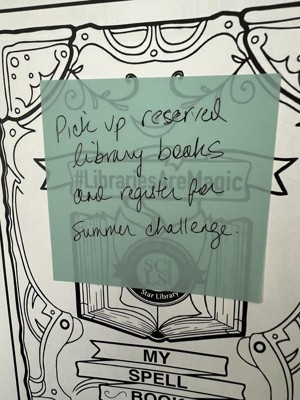 Pick up reserved
library books
#LibrariesAreMagic
and register for
summer challenge.
Star Library
MY
SPELL
BOOK